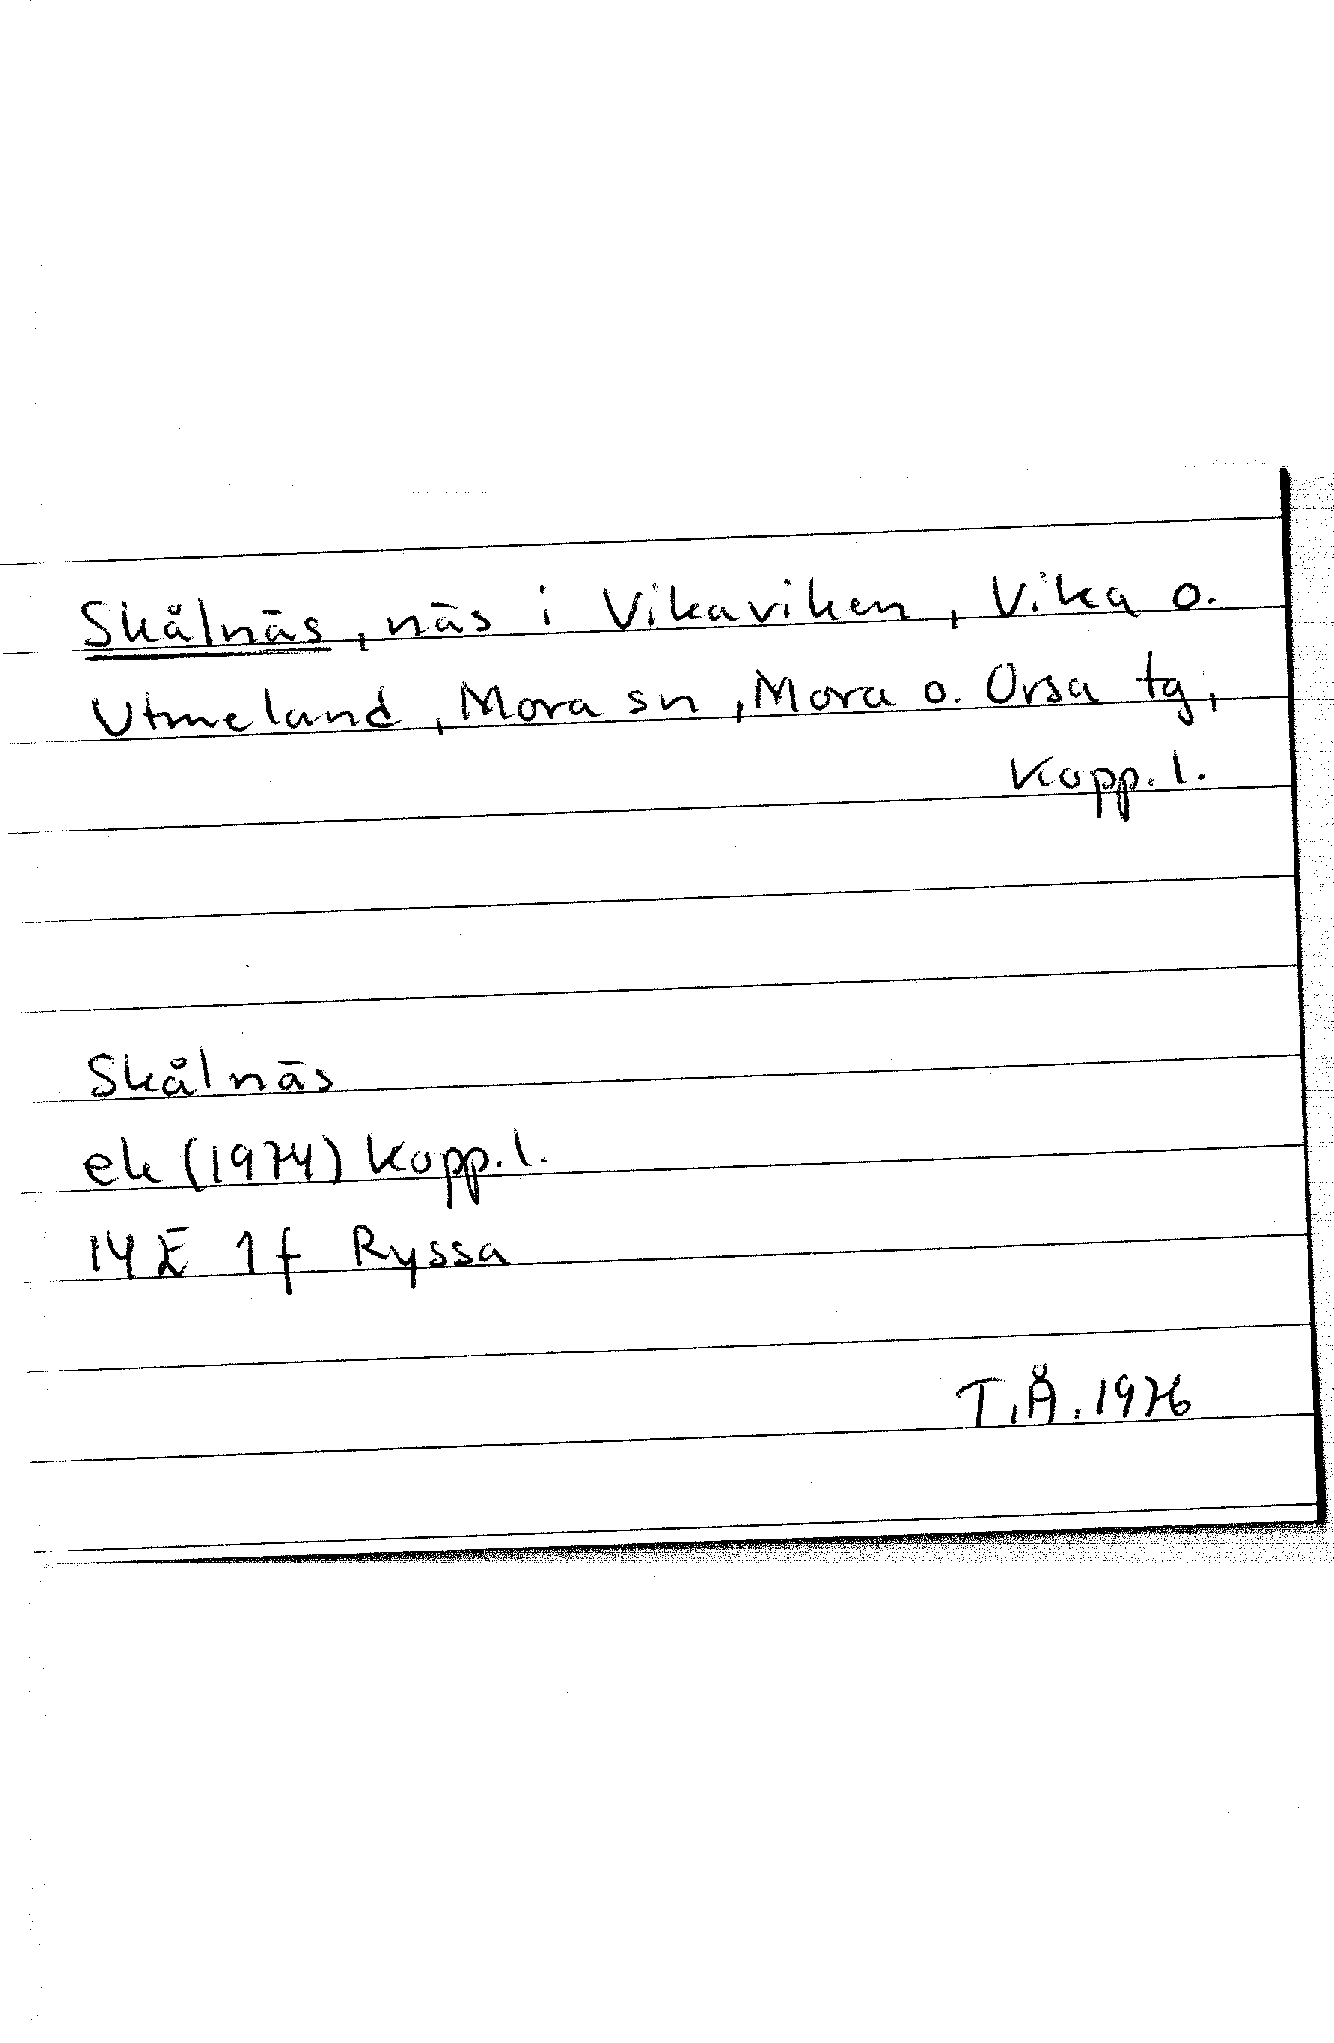 Skålnäs, näs i Vikaviken, Vika o.
Utmeland, Mora sn, Mora o. Orsa tg,
Kopp. l.
Skålnäs
ek (1974) Kopp. l.
14 E 1f Ryssa
T.Å. 1976